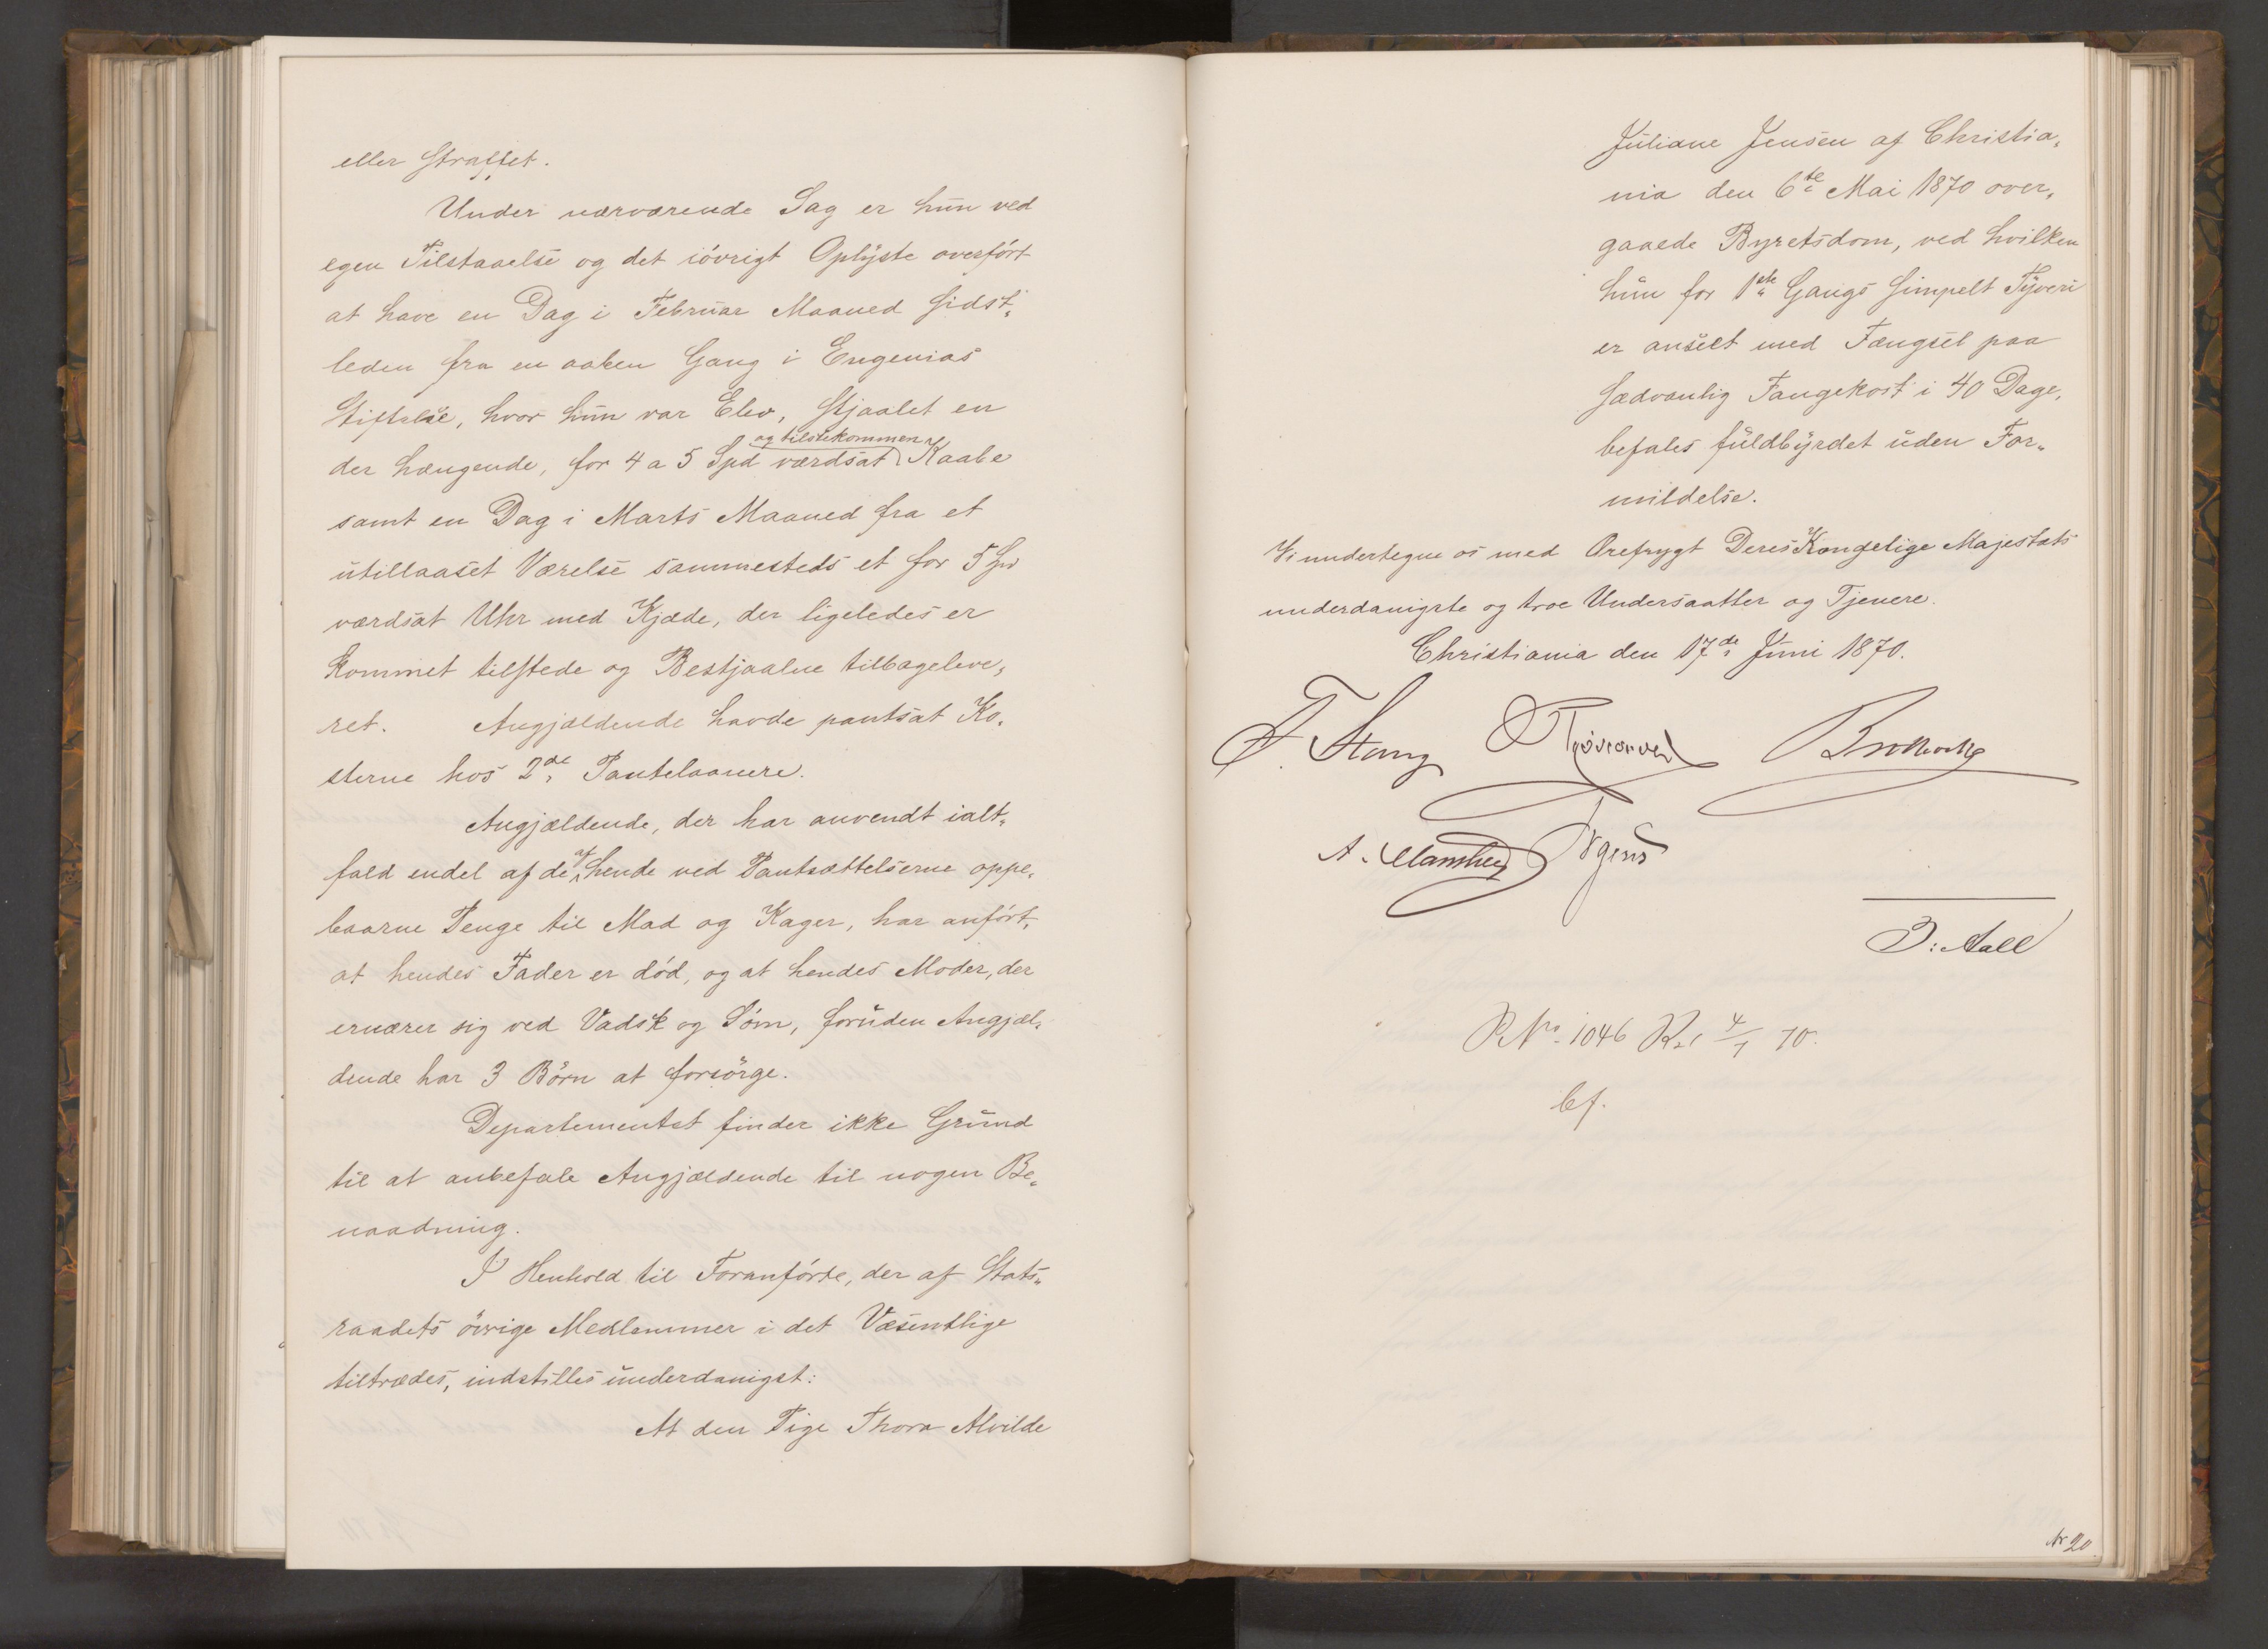 eller straffet.
Under nærværende Sag er hun ved
egen Tilstaaelse og det iövrigt Oplyste overfört
at have en Dag i Februar Maaned sidst-
leden fra en aaben Gang i Eugenias
Stiftelse, hvor hun var Elev, stjaalet en
og tilstekommen
der hængende, for 4 a 5 Spd værdsat Kaabe
samt en Dag i Marts Maaned fra et
utillaaset Værelse sammesteds et for 5 Spd
værdsat Uhr med Kjæde, der ligeledes er
kommet tilstede og Bestjaalne tilbageleve-
ret. Angjældende havde pantsat Ko-
sterne hos 2de Pantelaanere.
Angjældende, der har anvendt ialt-
fald endel af de af hende ved Pantsættelserne oppe-
baarne Penge til Mad og Kager, har anfört,
at hendes Fader er död, og at hendes Moder, der
ernærer sig ved Vadsk og Söm, foruden Angjæl-
dende har 3 Börn at forsörge.
Departementet finder ikke Grund
til at anbefale Angjældende til nogen Be-
naadning.
I Henhold til Foranförte, der af Stats-
raadets övrige Medlemmer i det Væsentlige
tiltrædes, indstilles underdanigst:
At den Pige Thora Alvilde
Juliane Jensen af Christia-
nia den 6te Mai 1870 over-
gaaede Byretsdom, ved hvilken
hun for 1ste Gangs simpelt Tyveri
er anseet med Fængsel paa
sædvanlig Fangekost i 40 Dage,
befales fuldbyrdet uden For-
mildelse.
Vi undertegne os med Ærefrygt Deres Kongelige Majestæts
underdanigste og troe Undersaatter og Tjenere.
Christiania den 17de Juni 1870.
F. Stang Bretteville
A. Manthey Irgens
J: Aall
R No 1046 4/7 70.
bf.
Nr 20